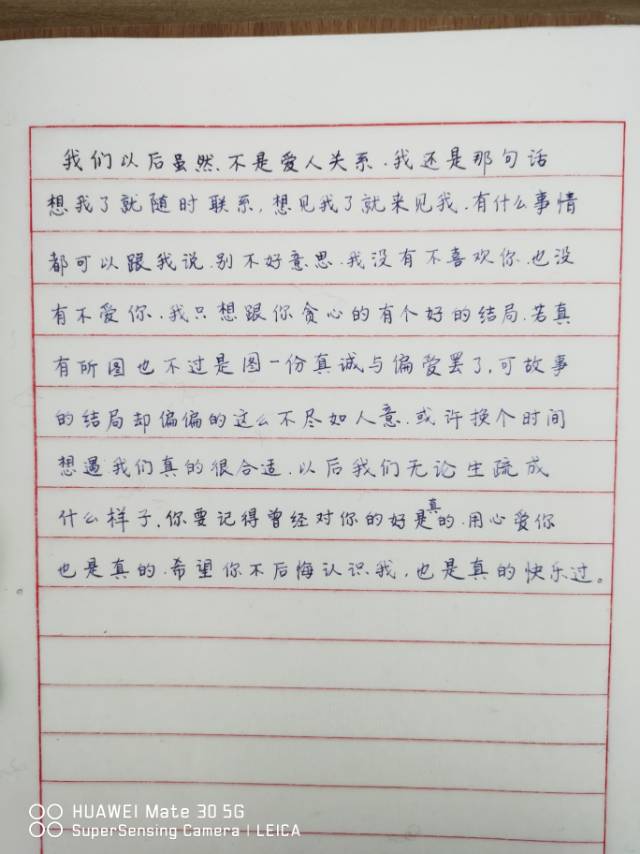 我们以后虽然.不是爱人关系.我还是那句话
想我了就随时联系,想见我了就来见我.有什么事情
都可以跟我说.别不好意思.我没有不喜欢你.也没
有不爱你.我只想跟你贪心的有个好的结局.若真
有所图也不过是图一份真诚与偏爱罢了,可故事
的结局却偏偏的这么不尽如人意.或许换个时间
想遇我们真的很合适.以后我们无论生疏成
什么样子.你要记得曾经对你的好是真的.用心爱你
也是真的.希望你不后悔认识我,也是真的快乐过。
HUAWEI Mate 30 5G
SuperSensing Camera | LEICA